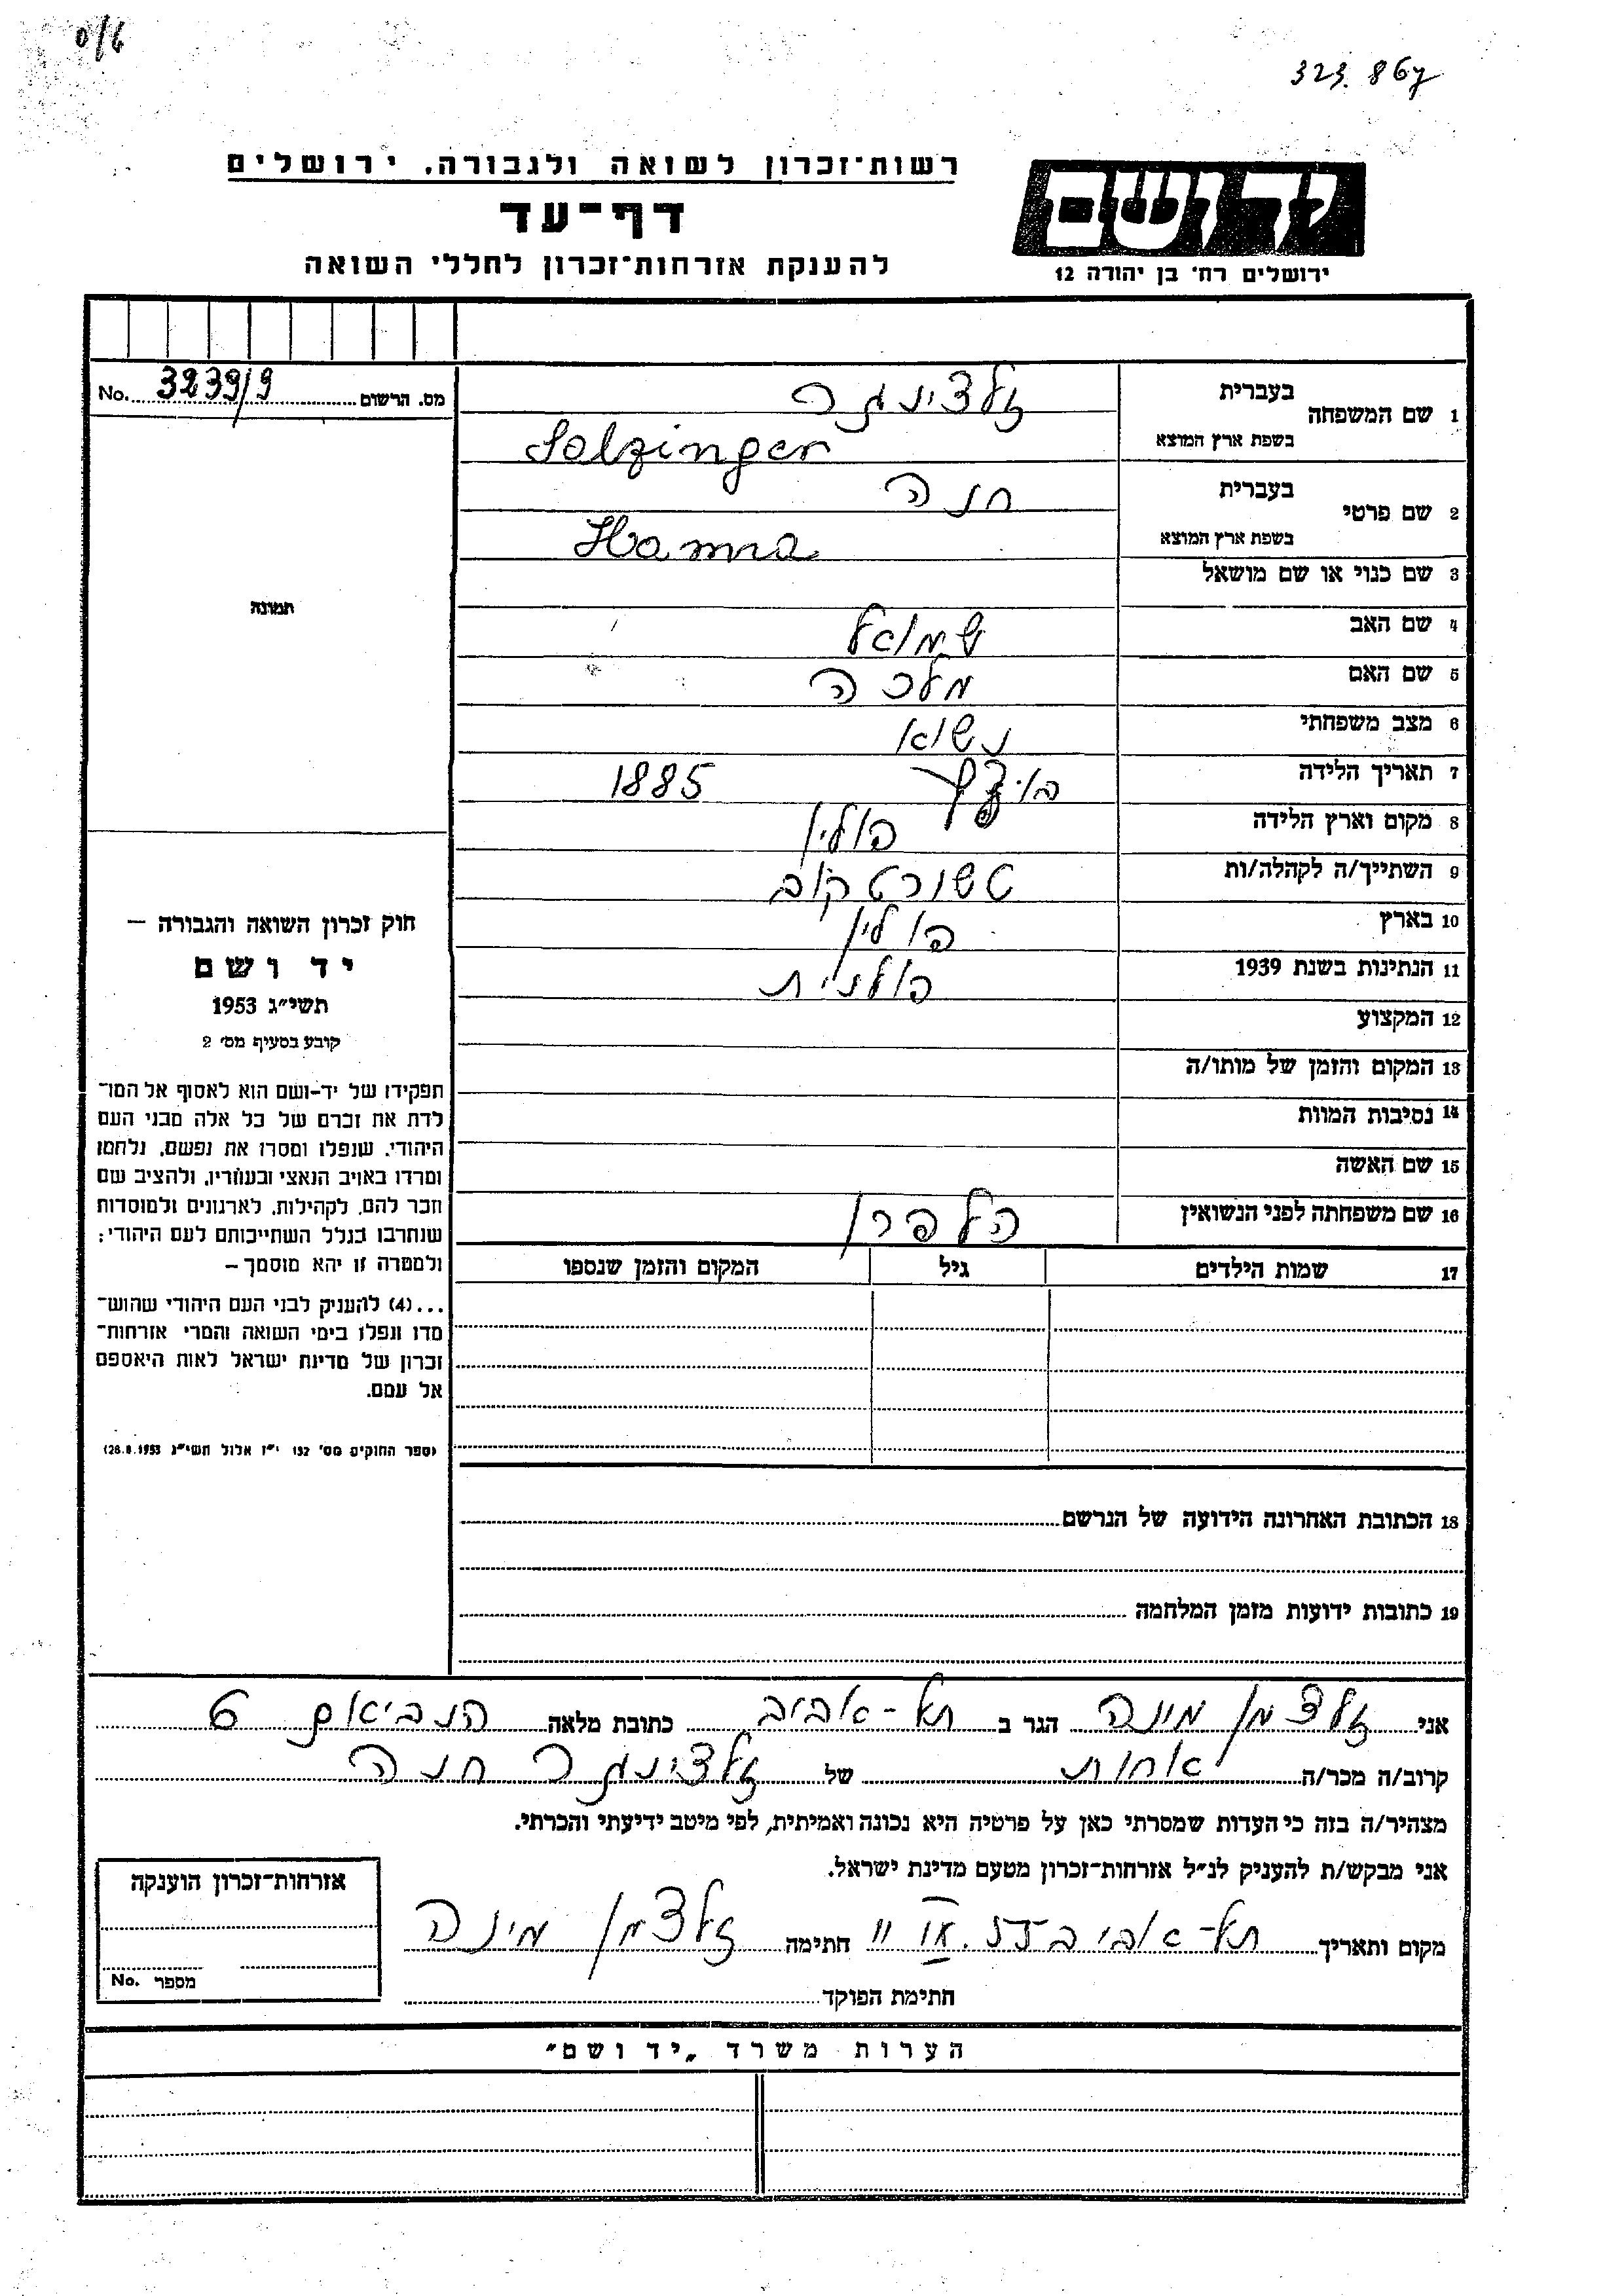 323.867
רשות־זכרון לשואה ולגבורה, ירושלים
דף־עד
להענקת אזרחות־זכרון לחללי השואה
ידושם
ירושלים רח׳ בן יהודה 12
מס. הרשום 3239/9 No.
1 שם המשפחה בעברית זלצינגר
בשפת ארץ המוצא Salzinger
2 שם פרטי בעברית חנה
בשפת ארץ המוצא Hanna
3 שם כנוי או שם מושאל
4 שם האב שמואל
5 שם האם מלכה
6 מצב משפחתי נשוא
7 תאריך הלידה 1885
8 מקום וארץ הלידה פולין
9 השתייך/ה לקהלה/ות טשורטקוב
10 בארץ פולין
11 הנתינות בשנת 1939 פולנית
12 המקצוע
13 המקום והזמן של מותו/ה
14 נסיבות המוות
15 שם האשה
16 שם משפחתה לפני הנשואין הלפרן
17 שמות הילדים גיל המקום והזמן שנספו
18 הכתובת האחרונה הידועה של הנרשם
19 כתובות ידועות מזמן המלחמה
תמונה
חוק זכרון השואה והגבורה –
יד ושם
תשי״ג 1953
קובע בסעיף מס׳ 2
תפקידו של יד-ושם הוא לאסוף אל המו־
לדת את זכרם של כל אלה מבני העם
היהודי, שנפלו ומסרו את נפשם, נלחמו
ומרדו באויב הנאצי ובעוזריו, ולהציב שם
וזכר להם, לקהילות, לארגונים ולמוסדות
שנחרבו בגלל השתייכותם לעם היהודי;
ולמטרה זו יהא מוסמך –
...(4) להעניק לבני העם היהודי שהוש־
מדו ונפלו בימי השואה והמרי אזרחות־
זכרון של מדינת ישראל לאות היאספם
אל עמם.
(ספר החוקים מס׳ 132 י״ז אלול תשי״ג 28.8.1953)
אני זלצמן מינה הגר ב תל-אביב כתובת מלאה הנביאים 6
קרוב/ה מכר/ה אחות של זלצינגר חנה
מצהיר/ה בזה כי העדות שמסרתי כאן על פרטיה היא נכונה ואמיתית, לפי מיטב ידיעתי והכרתי.
אני מבקש/ת להעניק לנ״ל אזרחות-זכרון מטעם מדינת ישראל.
מקום ותאריך תל-אביב חתימה זלצמן מינה
חתימת הפוקד
אזרחות־זכרון הוענקה
מספר No.
הערות משרד „יד ושם״